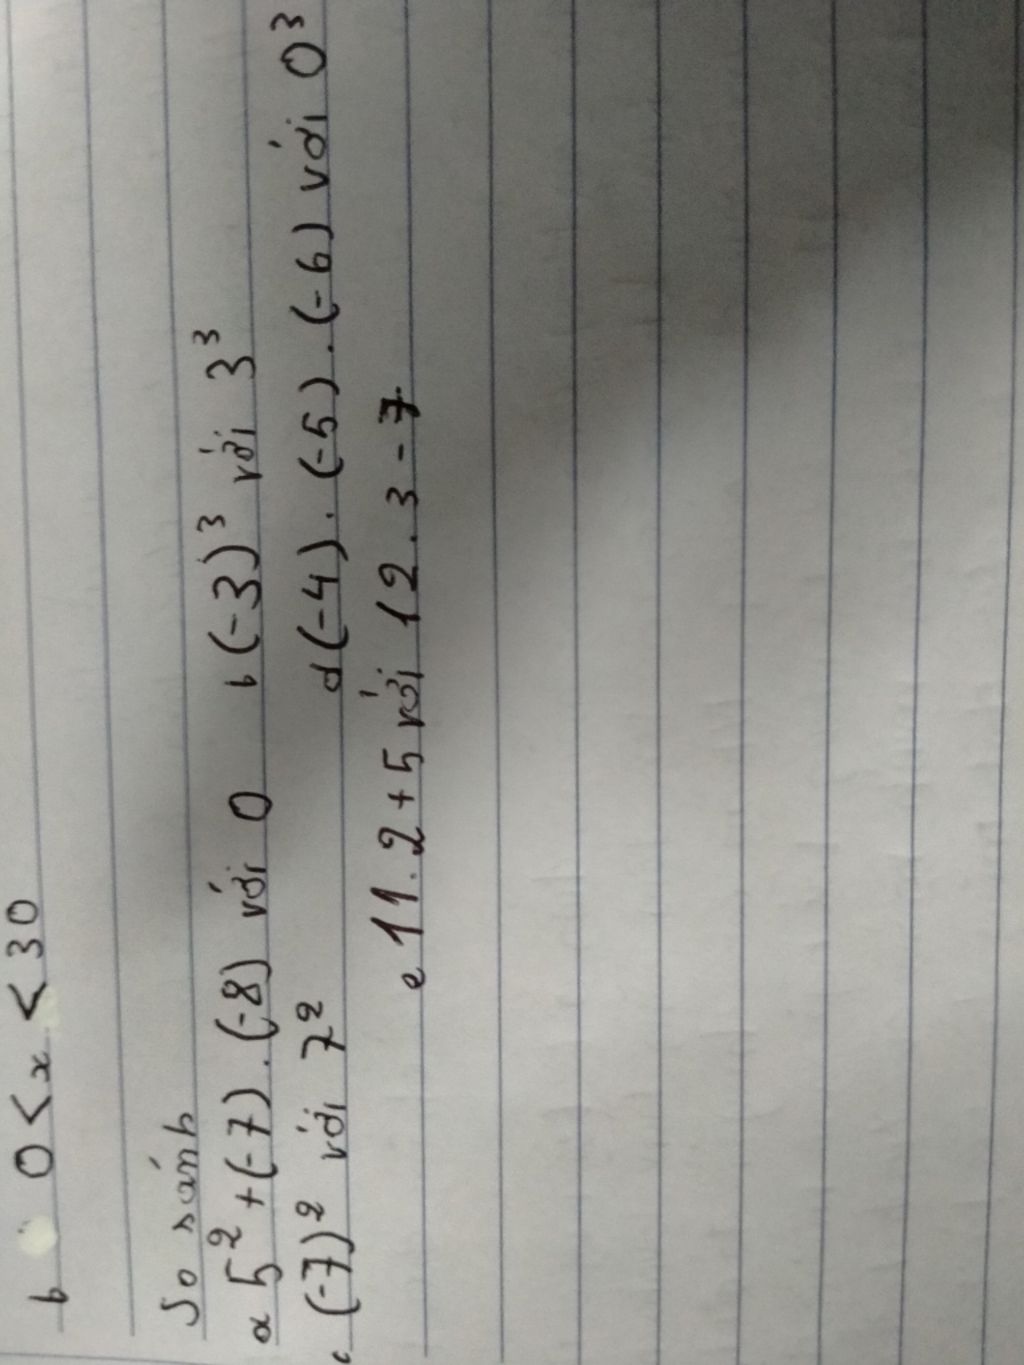 b 0 < x < 30
So sánh
a 5² + (-7) . (-8) với 0 b (-3)³ với 3³
c (-7)² với 7² d (-4) . (-5) . (-6) với 0³
e 11 . 2 + 5 với 12 . 3 - 7